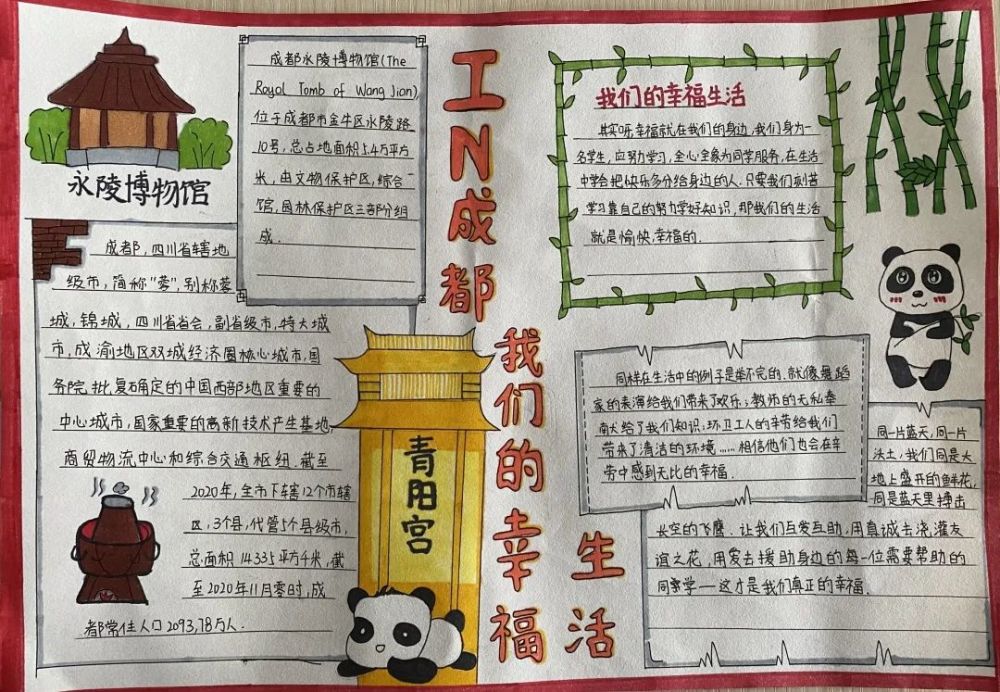 永陵博物馆
成都永陵博物馆(The
Royal Tomb of Wang Jian),
位于成都市金牛区永陵路
10号，总占地面积5.4万平方
米，由文物保护区，综合
馆，园林保护区三部分组
成.
成都，四川省辖地
级市，简称"蓉"，别称蓉
城，锦城，四川省省会，副省级市，特大城
市，成渝地区双城经济圈核心城市，国
务院批复确定的中国西部地区重要的
中心城市，国家重要的高新技术产生基地，
商贸物流中心和综合交通枢纽.截至
2020年，全市下辖12个市辖
区，3个县，代管5个县级市，
总面积14335平方千米，截
至2020年11月零时，成
都常住人口2093,78万人.
工N成都
我们的幸福
生活
青阳宫
我们的幸福生活
其实呀，幸福就在我们的身边，我们身为一
名学生，应努力学习，全心全意为同学服务，在生活
中学会把快乐多分给身边的人.只要我们刻苦
学习靠自己的努力学好知识，那我们的生活
就是愉快，幸福的.
同样在生活中的例子是举不完的.就像舞蹈
家的表演给我们带来了欢乐；教师的无私奉
献给了我们知识；环卫工人的辛劳给我们
带来了清洁的环境……相信他们也会在辛
劳中感到无比的幸福.
同一片蓝天，同一片
沃土，我们同是大
地上盛开的鲜花，
同是蓝天里搏击
长空的飞鹰.让我们互爱互助，用真诚去浇灌友
谊之花，用爱去援助身边的每一位需要帮助的
同学——这才是我们真正的幸福.